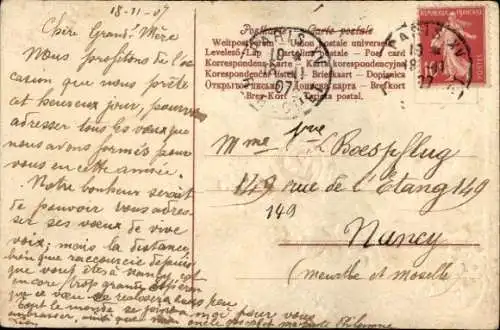 18-11-07
Chère Grand'Mère
Nous profitons de l'oc
casion que nous prête
cet heureux jour, pour vous
adresser tous les vœux que
nous avons formés pour
vous en cette année.
Notre bonheur serait
de pouvoir vous adres-
ser ses vœux de vive
voix; mais la distance
bien que raccourcie depuis
que vous êtes à Nancy, est
encore trop grande
que ce vœu se réalisera
Tout le monde se joint
embrasser, ainsi que mon oncle
Postkarte — Carte postale
Weltpostverein — Union postale universelle
Levelező-Lap — Cartolina postale — Post card
Korrespondenz-Karte — Karta korrespondencyjna
Korespondenční lístek — Briefkaart — Dopisnica
Открытое письмо — Дописна карта — Brefkort
Brev-Kort — Tarjeta postal.
PARIS
19
07
PARIS XV
18
07
REPUBLIQUE FRANÇAISE
10
Mme Vve Boespflug
149 rue de l'Étang 149
149
Nancy
(Meurthe et Moselle)